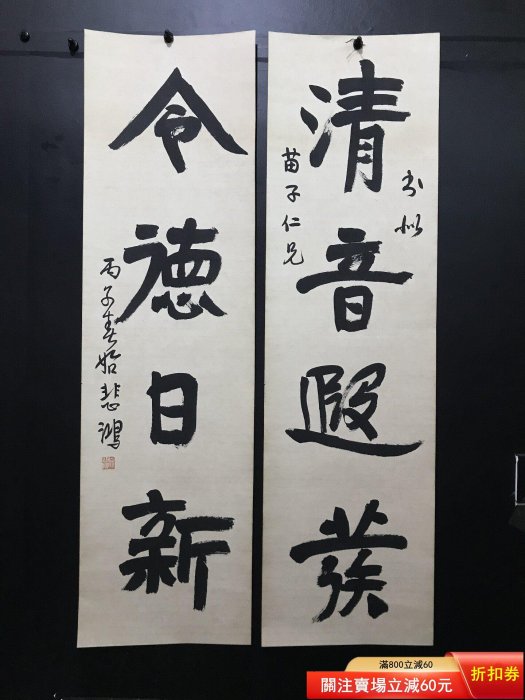 清音遐發
書似
苗子仁兄
令德日新
丙子春始悲鴻
滿800立減60
關注賣場立減60元
折扣券